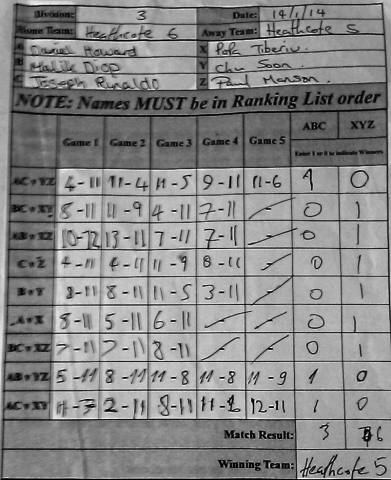 Division: 3 Date: 14/1/14
Home Team: Heathcote 6 Away Team: Heathcote 5
A Daniel Howard X Popa Tiberiu
B Malik Diop Y Chu Soon
C Joseph Rinaldo Z Paul Monson
NOTE: Names MUST be in Ranking List order
Game 1 Game 2 Game 3 Game 4 Game 5 ABC XYZ
Enter 1 or 0 to indicate Winners
AC v YZ 4-11 11-4 11-5 9-11 11-6 1 0
BC v XY 8-11 11-9 4-11 7-11 0 1
AB v XZ 10-12 13-11 7-11 7-11 0 1
C v Z 4-11 4-11 11-9 8-11 0 1
B v Y 8-11 11-5 3-11 0 1
A v X 8-11 5-11 6-11 0 1
BC v XZ 7-11 7-11 8-11 0 1
AB v YZ 5-11 8-11 11-8 11-8 11-9 1 0
AC v XY 2-11 8-11 12-11 1 0
Match Result: 3 6
Winning Team: Heathcote 5